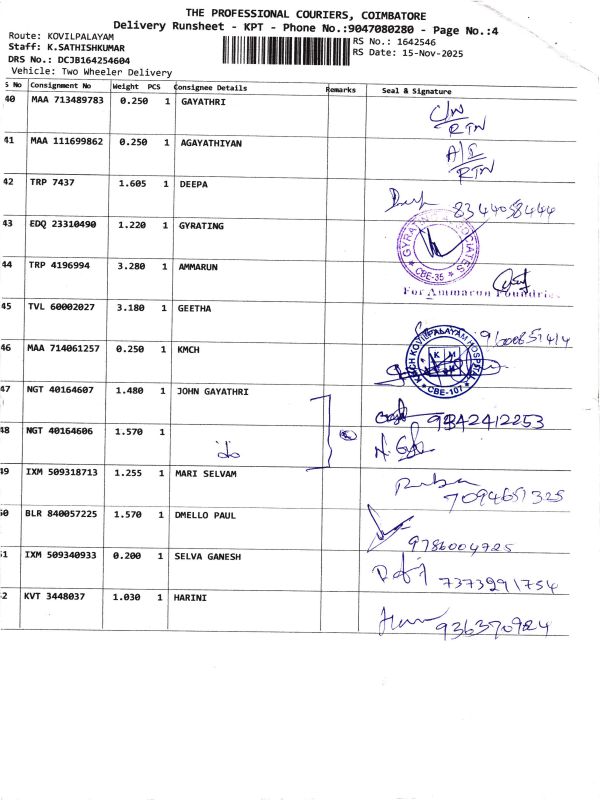 THE PROFESSIONAL COURIERS, COIMBATORE
Delivery Runsheet - KPT - Phone No.:9047080280 - Page No.:4
Route: KOVILPALAYAM
Staff: K.SATHISHKUMAR
DRS No.: DCJB164254604
Vehicle: Two Wheeler Delivery
RS No.: 1642546
RS Date: 15-Nov-2025
S No Consignment No Weight PCS Consignee Details Remarks Seal & Signature
40 MAA 713489783 0.250 1 GAYATHRI
RTN
41 MAA 111699862 0.250 1 AGAYATHIYAN
RTN
42 TRP 7437 1.605 1 DEEPA 8344058444
43 EDQ 23310490 1.220 1 GYRATING
GYRATING ASSOCIATES CBE-35
44 TRP 4196994 3.280 1 AMMARUN
For Ammarun Foundries
45 TVL 60002027 3.180 1 GEETHA
46 MAA 714061257 0.250 1 KMCH
KMCH KOVILPALAYAM HOSPITAL CBE-107
47 NGT 40164607 1.480 1 JOHN GAYATHRI 9342412253
48 NGT 40164606 1.570 1
49 IXM 509318713 1.255 1 MARI SELVAM
7094651325
50 BLR 840057225 1.570 1 DMELLO PAUL
9786004725
51 IXM 509340933 0.200 1 SELVA GANESH 7373291754
52 KVT 3448037 1.030 1 HARINI
936370924